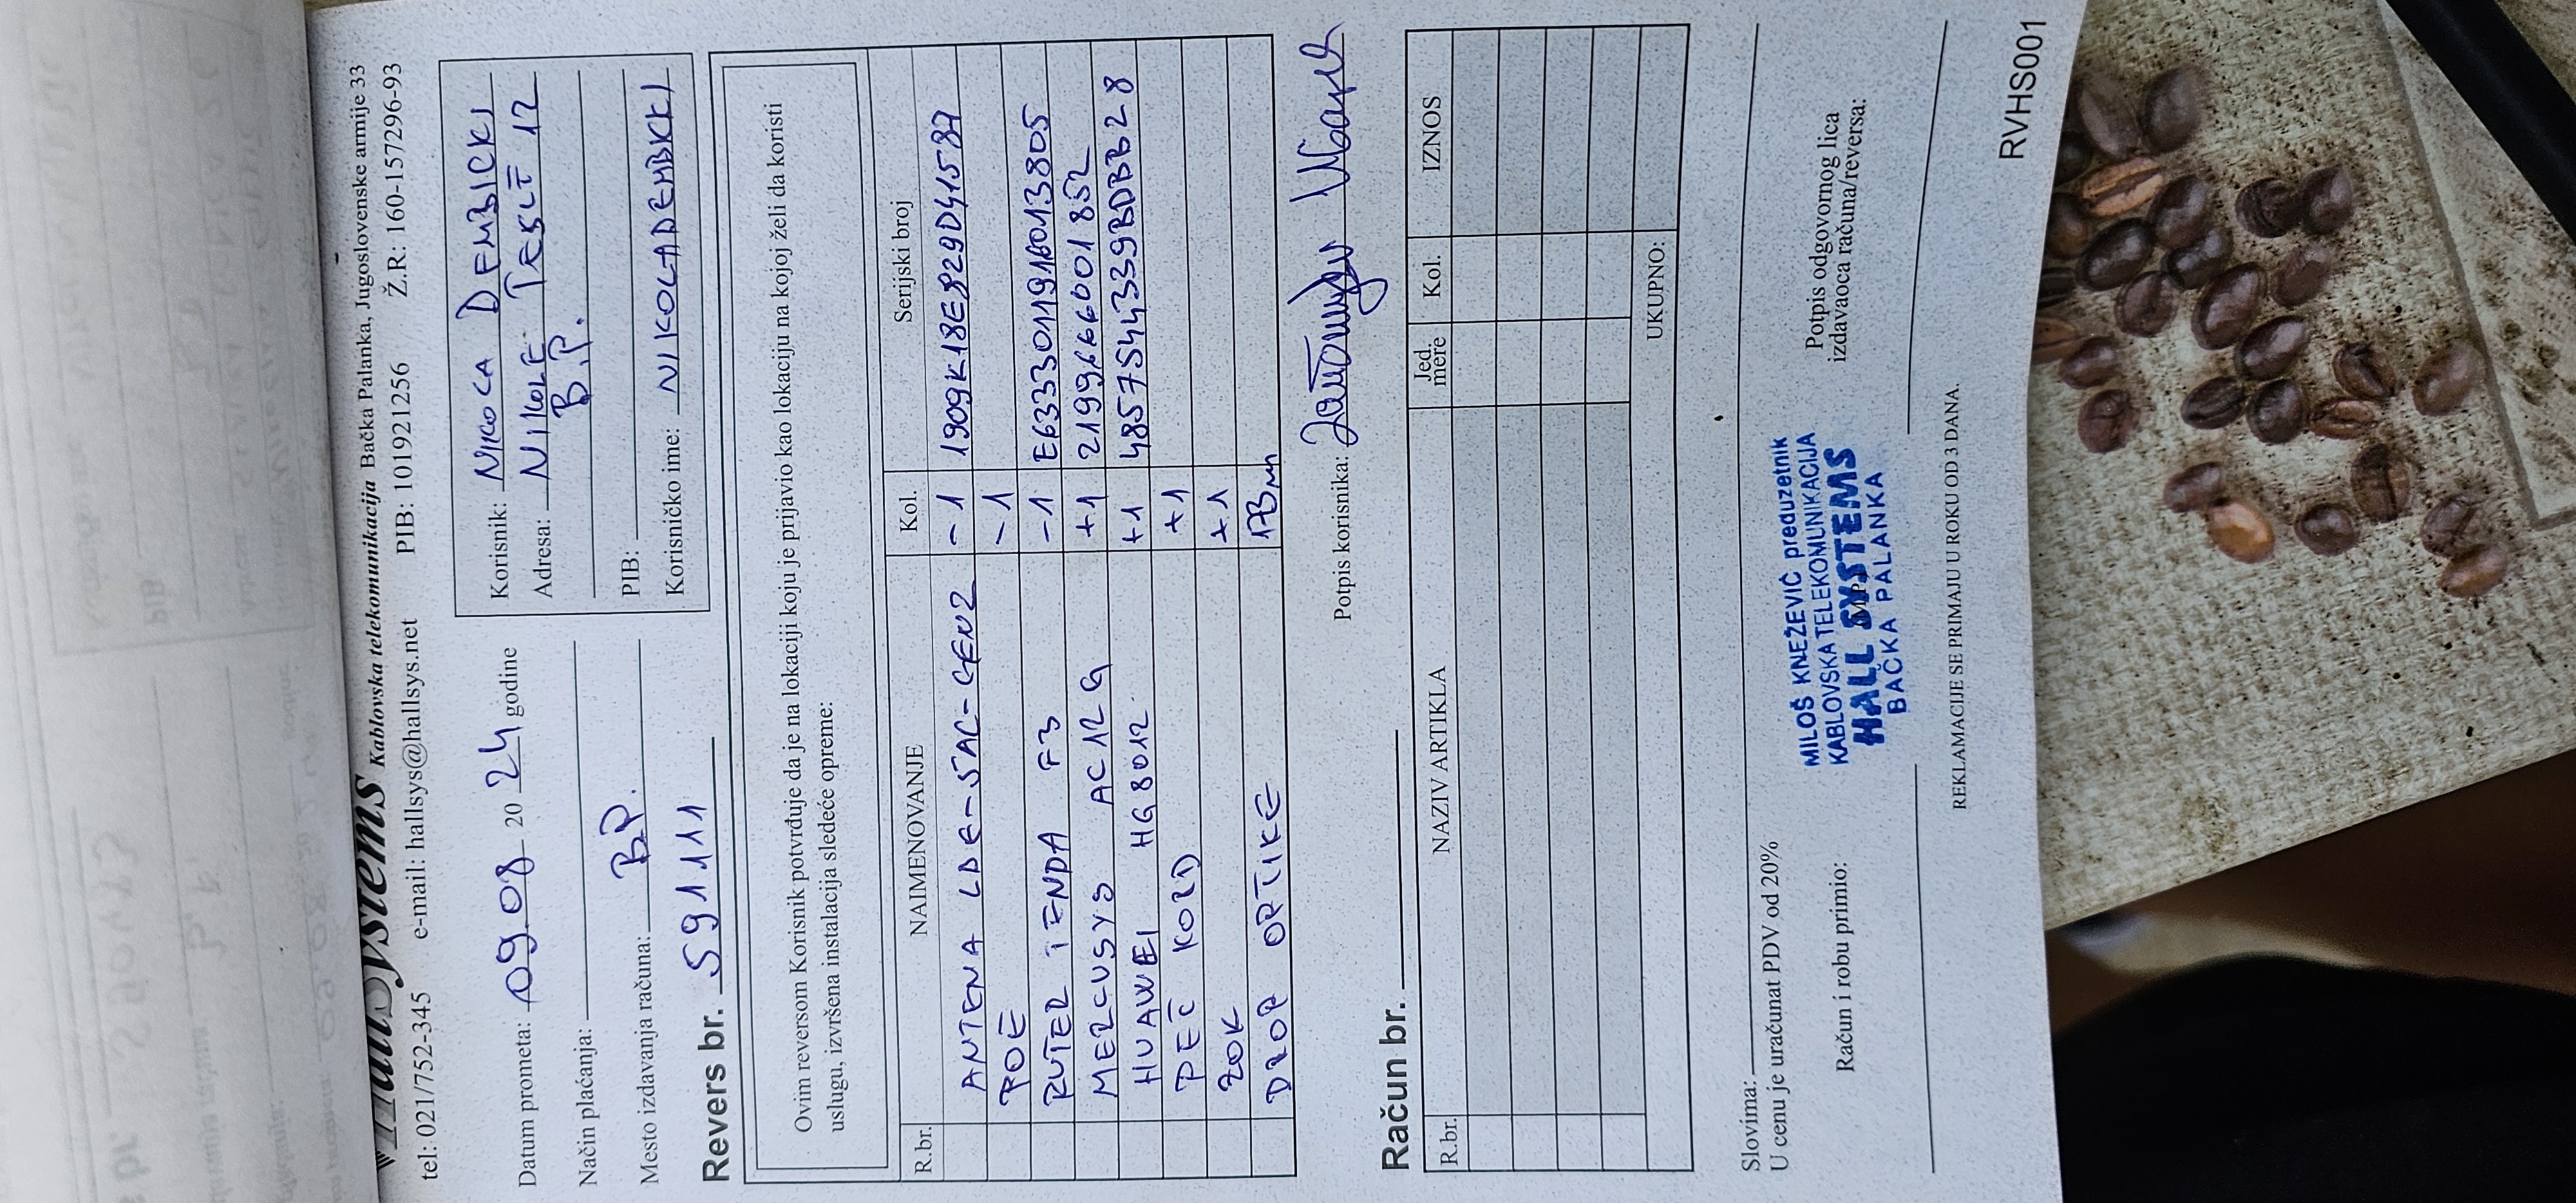 HallSystems Kablovska telekomunikacija Bačka Palanka, Jugoslovenske armije 33
tel: 021/752-345 e-mail: hallsys@hallsys.net PIB: 101921256 Ž.R: 160-157296-93
Datum prometa: 09.08 20 24 godine
Način plaćanja:
Mesto izdavanja računa: B.P.
Korisnik: NIKOLA DEMBICKI
Adresa: NIKOLE TESLE 12
B.P.
PIB:
Korisničko ime: NIKOLADEMBICKI
Revers br. 591111
Ovim reversom Korisnik potvrđuje da je na lokaciji koju je prijavio kao lokaciju na kojoj želi da koristi
uslugu, izvršena instalacija sledeće opreme:
R.br. NAIMENOVANJE Kol. Serijski broj
ANTENA LDE-5AC-GEN2 -1 1909K18E829D41587
POE -1
RUTER TENDA F3 -1 E6333011916013805
MERCUSYS AC12G +1 2199666001852
HUAWEI HG8012 +1 4857544339BDBB28
PEČ KORD +1
ZOK +1
DROP OPTIKE 173m
Potpis korisnika:
Račun br.
R.br. NAZIV ARTIKLA Jed. mere Kol. IZNOS
UKUPNO:
Slovima:
U cenu je uračunat PDV od 20%
Račun i robu primio:
MILOŠ KNEŽEVIĆ preduzetnik
KABLOVSKA TELEKOMUNIKACIJA
HALL SYSTEMS
BAČKA PALANKA
Potpis odgovornog lica
izdavaoca računa/reversa:
REKLAMACIJE SE PRIMAJU U ROKU OD 3 DANA.
RVHS001